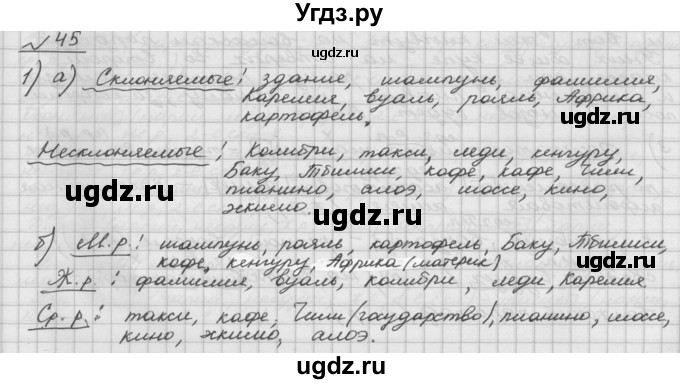 Угдз.ру
№ 45
ugdz.ru
1) а) Склоняемые: здание, шампунь, фамилия,
Карелия, вуаль, рояль, Африка,
картофель.
ugdz.ru
Несклоняемые: Колибри, такси, леди, кенгуру,
Баку, Тбилиси, кофе, кафе, Чили,
ugdz.ru
ugdz.ru
пианино, алоэ, шоссе, кино,
эскимо.
ugdz.ru
б) М.р.: шампунь, рояль, картофель, Баку, Тбилиси,
кофе, кенгуру, Африка (материк)
ugdz.ru
Ж.р.: фамилия, вуаль, колибри, леди, Карелия
Ср.р.: такси, кафе, Чили (государство), пианино, шоссе,
ugdz.ru
кино, эскимо, алоэ.
ugdz.ru
ugdz.ru
Угдз.ру